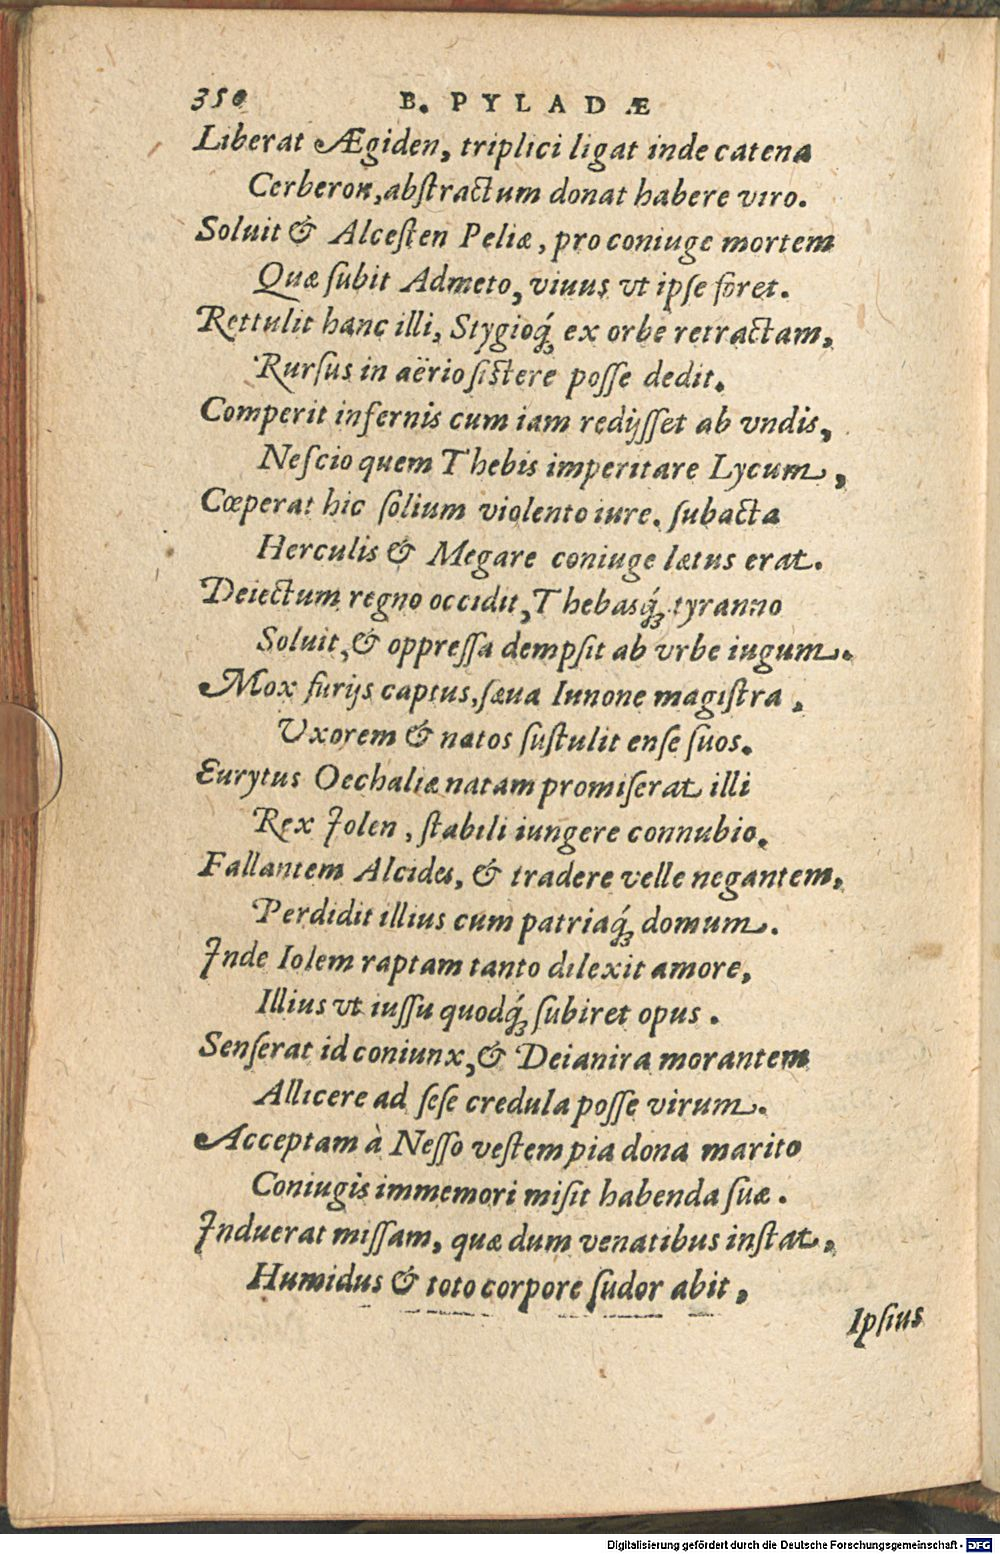 350 B. PYLADÆ
Liberat Ægiden, triplici ligat inde catena
Cerberon, abſtractum donat habere viro.
Soluit & Alceſten Peliæ, pro coniuge mortem
Quæ ſubit Admeto, viuus vt ipſe foret.
Rettulit hanc illi, Stygioq́ꝫ ex orbe retractam,
Rurſus in aërio ſiſtere poſſe dedit.
Comperit infernis cum iam redijſſet ab vndis,
Neſcio quem Thebis imperitare Lycum,
Cœperat hic ſolium violento iure, ſubacta
Herculis & Megare coniuge lætus erat.
Deiectum regno occidit, Thebasq́ꝫ tyranno
Soluit, & oppreſſa dempſit ab vrbe iugum.
Mox furijs captus, ſæua Iunone magiſtra,
Vxorem & natos ſuſtulit enſe ſuos.
Eurytus Oechaliæ natam promiſerat illi
Rex Iolen, ſtabili iungere connubio.
Fallantem Alcides, & tradere velle negantem,
Perdidit illius cum patriaq́ꝫ domum.
Inde Iolem raptam tanto dilexit amore,
Illius vt iuſſu quodq́ꝫ ſubiret opus.
Senſerat id coniunx, & Deianira morantem
Allicere ad ſeſe credula poſſe virum.
Acceptam à Neſſo veſtem pia dona marito
Coniugis immemori miſit habenda ſuæ.
Induerat miſſam, quæ dum venatibus inſtat,
Humidus & toto corpore ſudor abit,
Ipſius
Digitalisierung gefördert durch die Deutsche Forschungsgemeinschaft - DFG